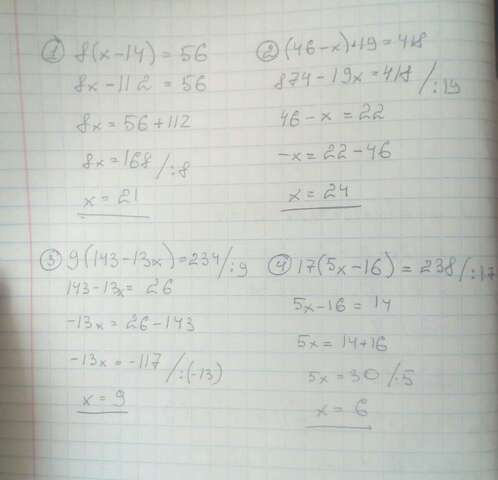 ① 8(x-14) = 56
8x-112 = 56
8x = 56+112
8x = 168 /:8
x = 21
② (46-x)·19 = 418
874-19x = 418 /:19
46-x = 22
-x = 22-46
x = 24
③ 9(143-13x) = 234 /:9
143-13x = 26
-13x = 26-143
-13x = -117 /:(-13)
x = 9
④ 17(5x-16) = 238 /:17
5x-16 = 14
5x = 14+16
5x = 30 /:5
x = 6